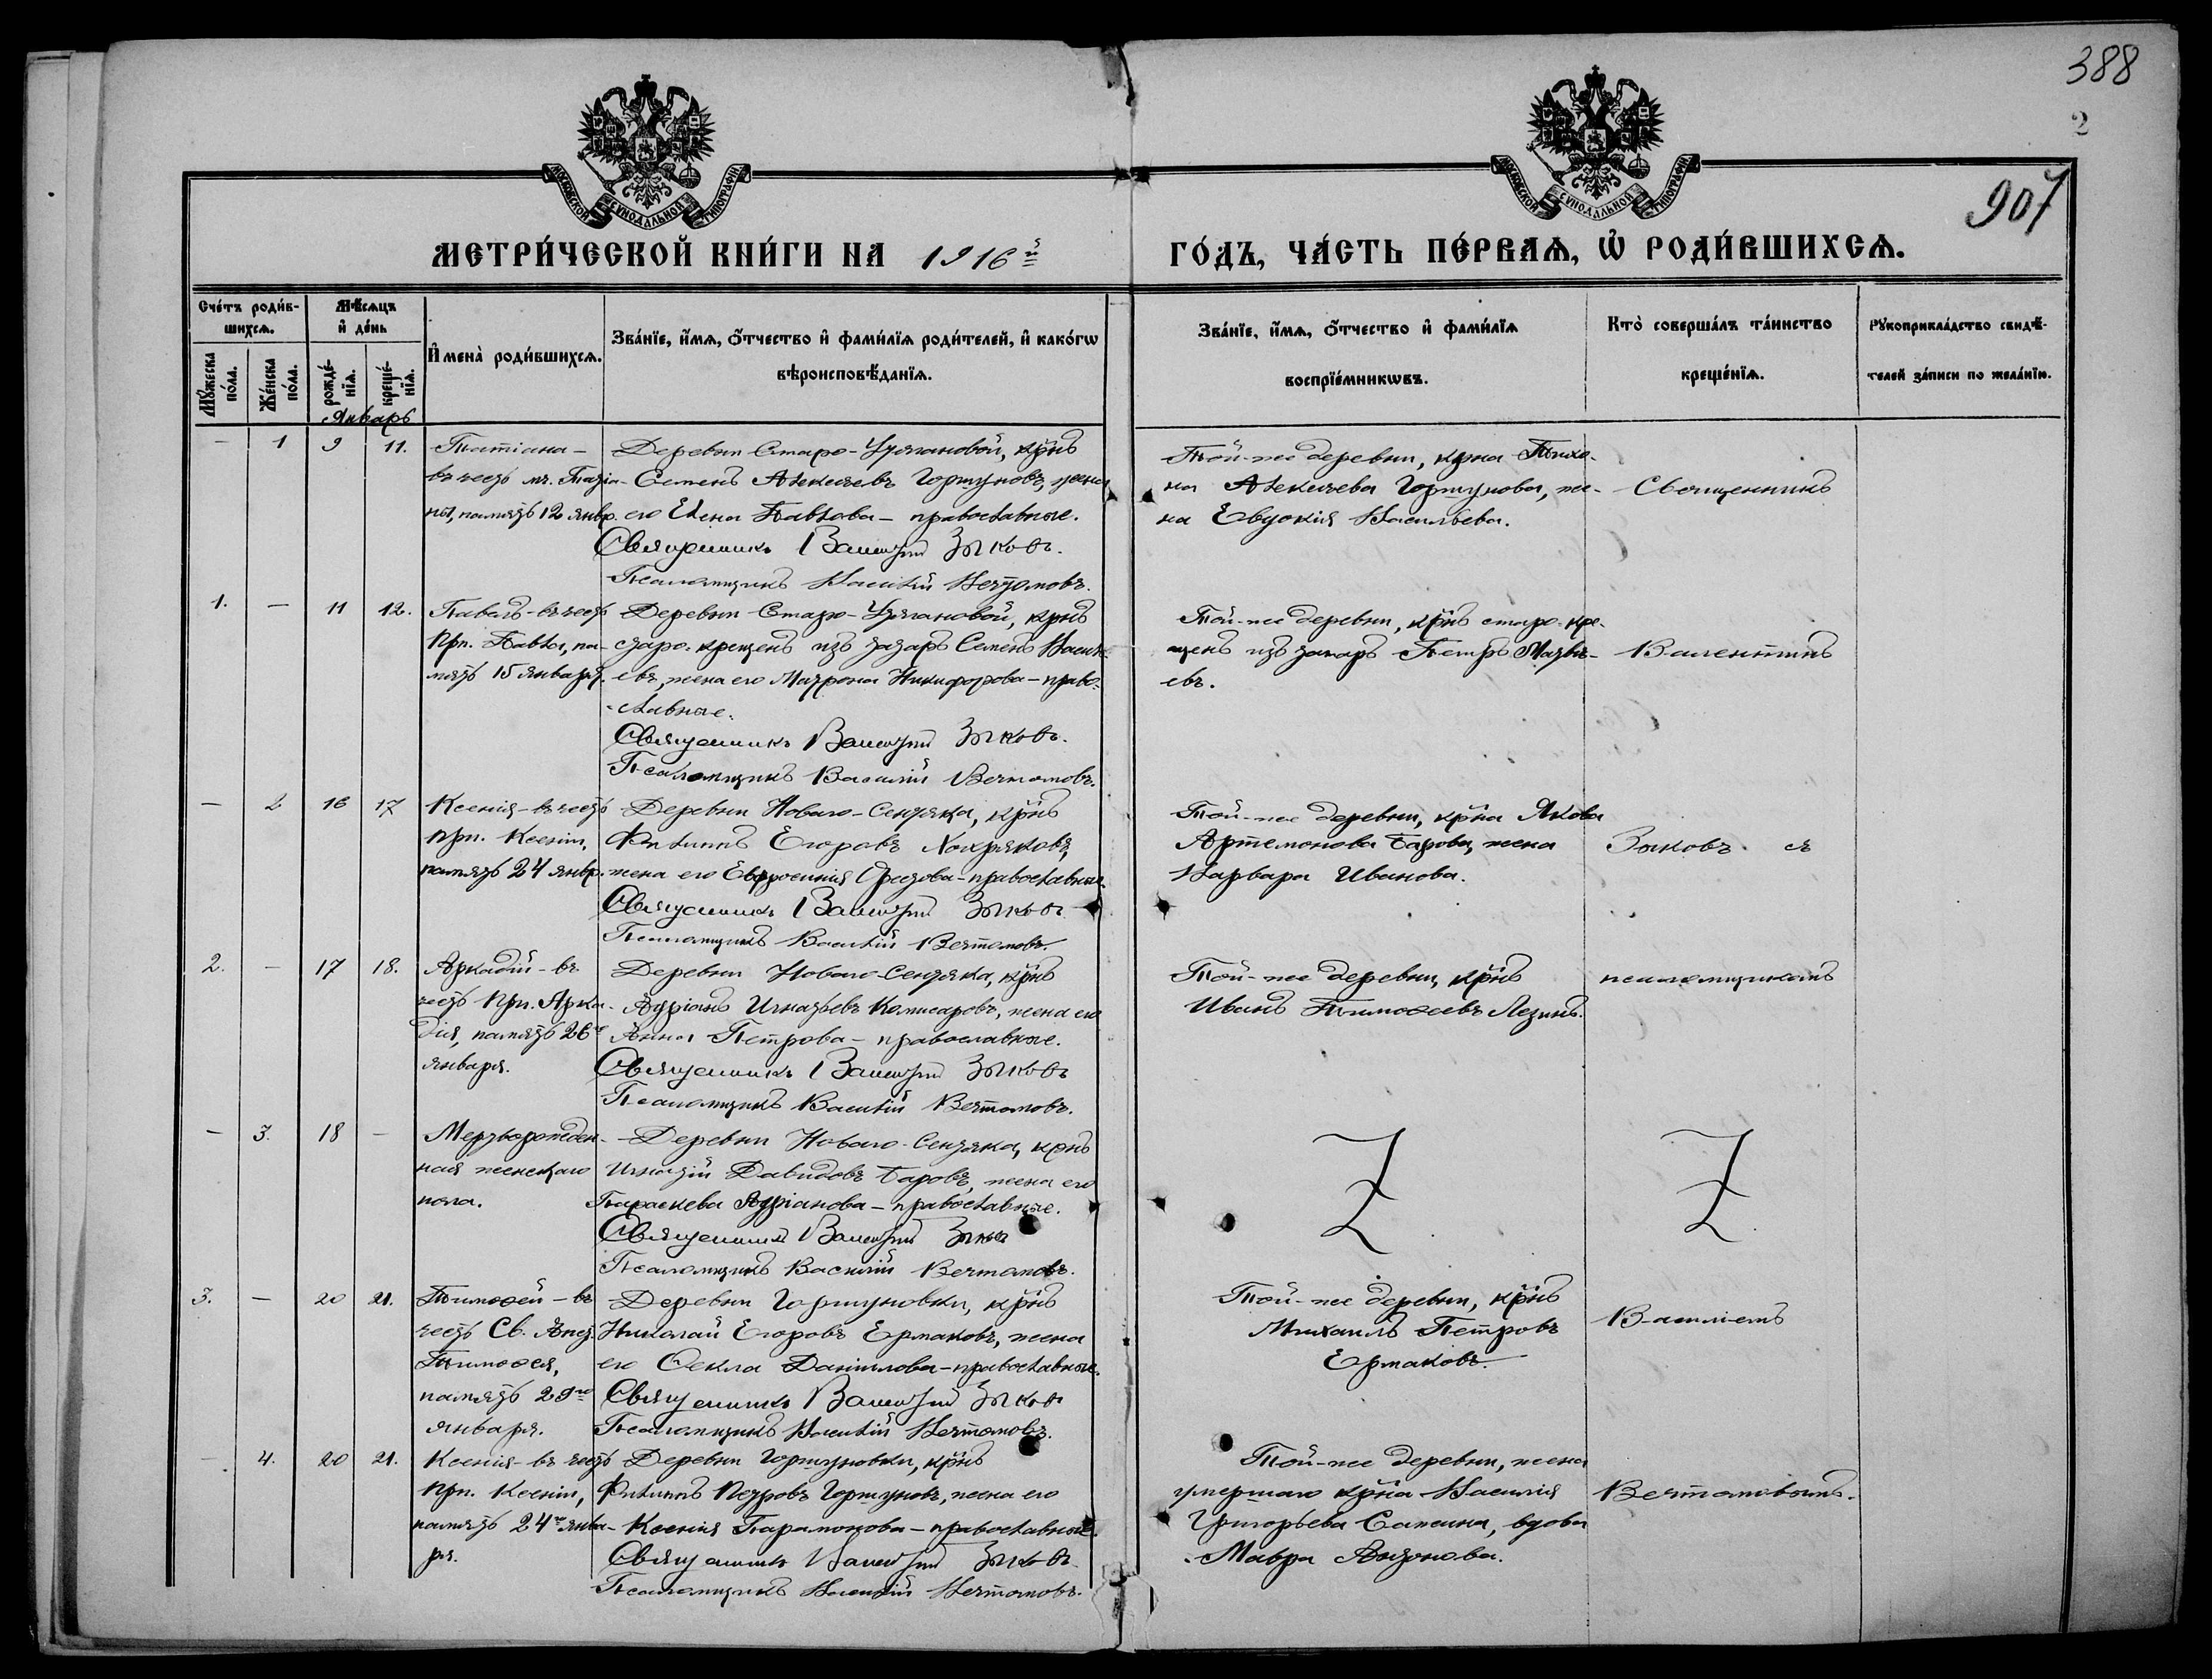 388
2
907
МОСКОВСКОЙ СѴНОДАЛЬНОЙ ТИПОГРАФІИ
МОСКОВСКОЙ СѴНОДАЛЬНОЙ ТИПОГРАФІИ
МЕТРИ́ЧЕСКОЙ КНИ́ГИ НА 1916й ГО́ДЪ, ЧА́СТЬ ПЕ́РВАѦ, Ѿ РОДИ́ВШИХСѦ.
Сче́тъ роди́в-
шихсѧ.
Мѣ́сѧцъ
и҆ де́нь
Мꙋ́жеска по́ла.
Же́нска по́ла.
рожде́-нїѧ.
креще́-нїѧ.
И҆мена̀ роди́вшихсѧ.
Зва́нїе, и҆́мѧ, ѻ҆́тчество и҆ фами́лїѧ роди́телей, и҆ како́гѡ
вѣроисповѣ́данїѧ.
Зва́нїе, и҆́мѧ, ѻ҆́тчество и҆ фами́лїѧ
воспрїе́мникѡвъ.
Кто̀ соверша́лъ та́инство
креще́нїѧ.
Рꙋкоприкла́дство свидѣ́-
телей за́писи по жела́нїю.
Январь
— 1 9 11.
Татіана —
въ честь мч. Татіа-
ны, память 12 янвр.
Деревни Старо- крнъ
Семенъ Алексѣевъ Горшуновъ, жена
его Елена Павлова — православные.
Священникъ Валентин Зыковъ.
Псаломщикъ Василій Вечтомовъ.
Той-же деревни, крна Тихо-
на Алексѣева Горшунова, же-
на Евдокія Васильева.
Священникъ
1. — 11 12.
Павелъ — въ честь
Прп. Павла, па-
мять 15 января.
Деревни Старо- крнъ
старо-крещенъ изъ татаръ Семенъ Василь-
евъ, жена его Матрона Никифорова — право-
славные.
Священникъ Валентин Зыковъ.
Псаломщикъ Василій Вечтомовъ.
Той-же деревни, крнъ старо-кре-
щенъ изъ татаръ Петръ Матвѣ-
евъ.
Валентинъ
— 2 16 17
Ксенія — въ честь
прп. Ксеніи,
память 24 янвр.
Деревни Новаго-Сентяка, крнъ
Филиппъ Егоровъ Хохряковъ,
жена его Евфросинія — православные.
Священникъ Валентин Зыковъ
Псаломщикъ Василій Вечтомовъ.
Той-же деревни, крна Якова
Артемонова Барова, жена
Варвара Иванова.
Зыковъ съ
2. — 17 18.
Аркадій — въ
честь Прп. Арка-
дія, память 26го
января.
Деревни Новаго-Сентяка, крнъ
Адріанъ Игнатьевъ Комисаровъ, жена его
Анна Петрова — православные.
Священникъ Валентин Зыковъ
Псаломщикъ Василій Вечтомовъ.
Той-же деревни, крнъ
Иванъ Тимоѳеевъ Лезинъ.
псаломщикомъ
— 3. 18 —
Мертворожден-
ная женскаго
пола.
Деревни Новаго-Сентяка, крнъ
Игнатій Давидовъ Баровъ, жена его
Параскева Адріанова — православные.
Священникъ Валентин Зыковъ
Псаломщикъ Василій Вечтомовъ.
3. — 20 21.
Тимоѳей — въ
честь Св. Апост.
Тимоѳея,
память 29го
января.
Деревни Горшуновки, крнъ
Николай Егоровъ Ермаковъ, жена
его Ѳекла Даніилова — православные.
Священникъ Валентин Зыковъ
Псаломщикъ Василій Вечтомовъ.
Той-же деревни, крнъ
Михаилъ Петровъ
Ермаковъ.
Василіемъ
— 4. 20 21.
Ксенія — въ честь
прп. Ксеніи,
память 24го янва-
ря.
Деревни Горшуновки, крнъ
Филиппъ Петровъ Горшуновъ, жена его
Ксенія Парамонова — православные.
Священникъ Валентин Зыковъ
Псаломщикъ Василій Вечтомовъ.
Той-же деревни, жена
умершаго крна Василія
Григорьева Сапина, вдова
Мавра Антонова.
Вечтомовымъ.